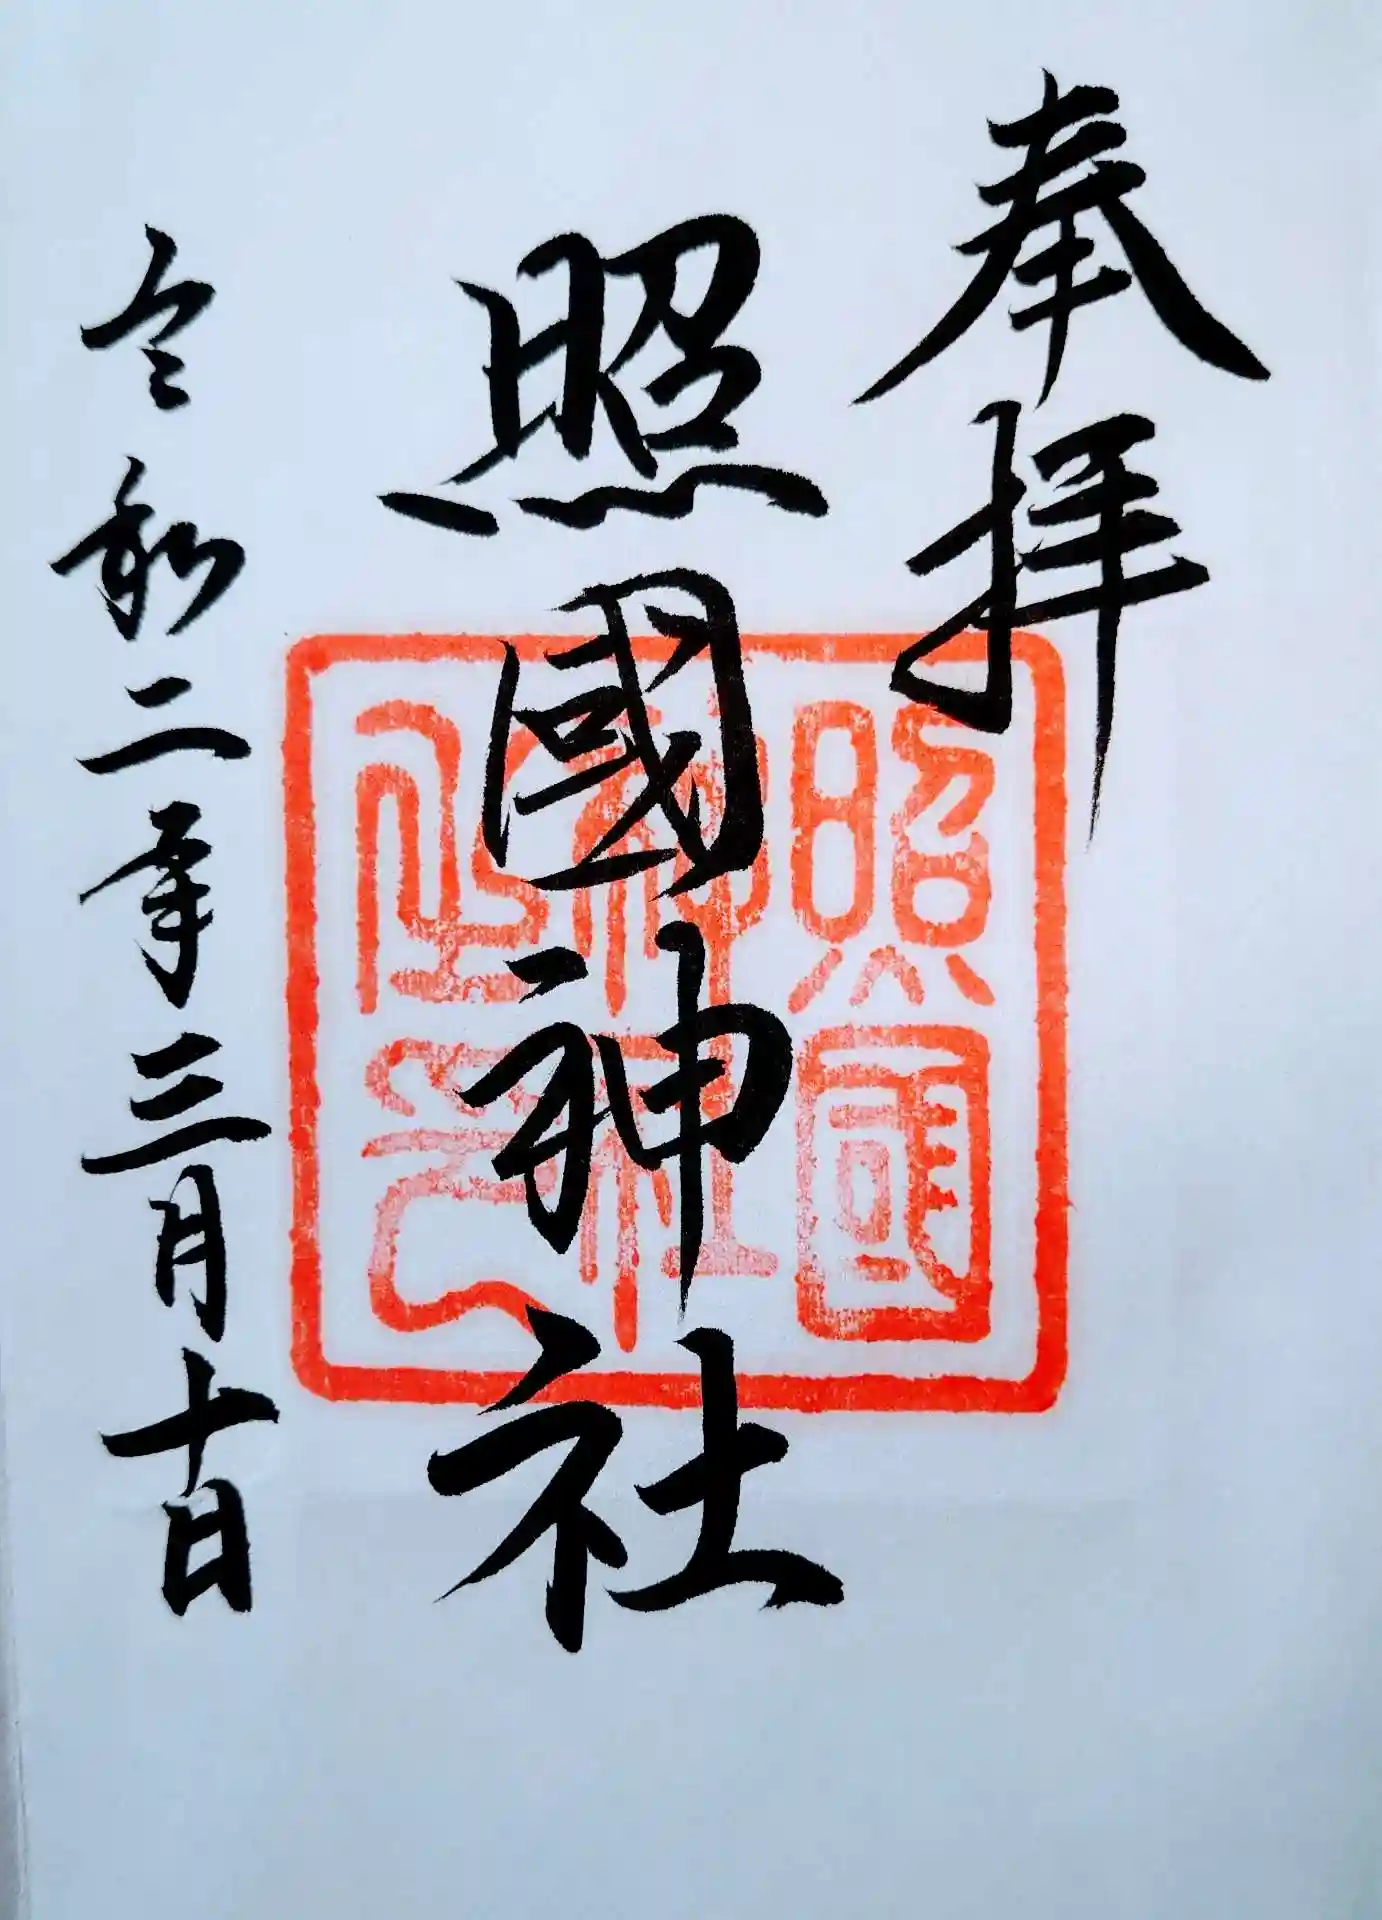 奉拝
照國神社
照國
神社
之印
令和二年三月十日